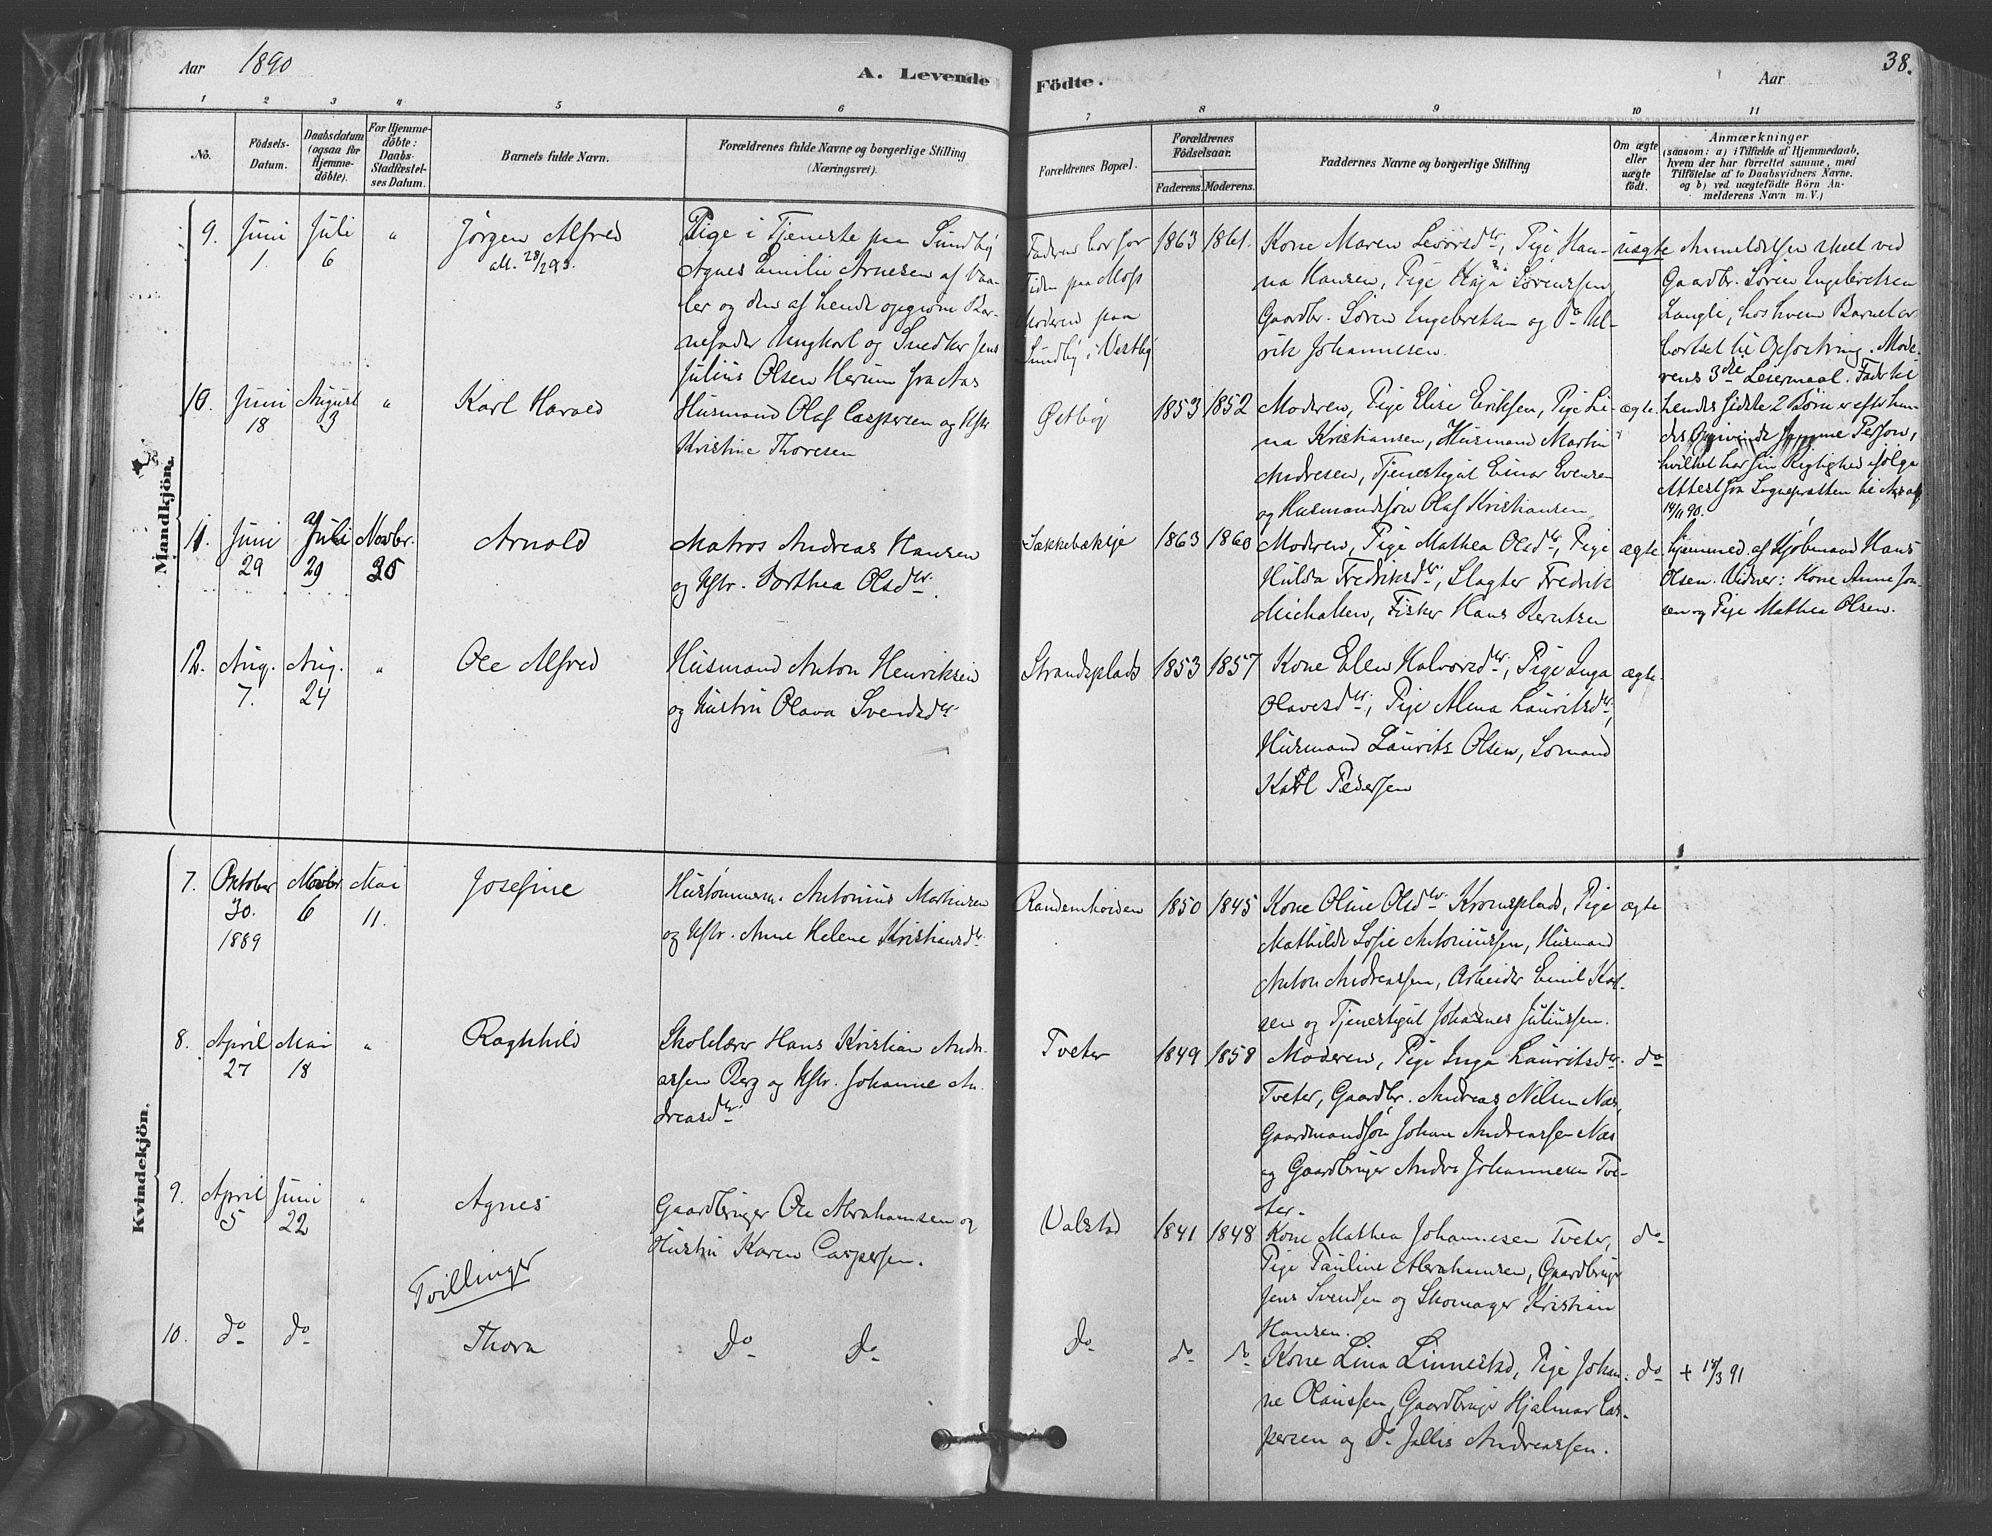 Aar 1890
A. Levende
Födte.
Aar
38.
1 2 3 4 5 6 7 8 9 10 11
No.
Födsels-
Datum.
Daabsdatum
(ogsaa for
Hjemme-
döbte).
For Hjemme-
döbte:
Daabs-
Stadfæstel-
ses Datum.
Barnets fulde Navn.
Forældrenes fulde Navne og borgerlige Stilling
(Næringsvei).
Forældrenes Bopæl.
Forældrenes
Födselsaar.
Faderens. Moderens.
Faddernes Navne og borgerlige Stilling
Om ægte
eller
uægte
födt.
Anmærkninger
(saasom: a) i Tilfælde af Hjemmedaab,
hvem der har forrettet samme, med
Tilföielse af to Daabsvidners Navne.
og b) ved uægtefödte Börn An-
melderens Navn m. V.)
Mandkjön.
9. Juni 1. Juli 6 "
Jørgen Alfred
att. 28/2 93.
Pige i Tjeneste paa Sundby
Agnes Emilie Arnesen af Vaa-
ler og den af hende opgivne Bar-
nefader Ungkarl og Snedker Jens
Julius Olsen Herum fra Aas
Faderen bor for
Tiden paa Moss
Moderen paa
Sundby i Vestby
1863 1861.
Kone Maren Levorsdtr, Pige Han-
na Hansen, Pige Kaja Sørenssen
Gaardbr. Søren Ingebretsen og Do Ul-
rik Johannesen.
uægte
Anmeldelsen skeet ved
Gaardbr. Søren Ingebretsen
Langli, hos hvem Barnet er
bortsat til Opfostring. Mode-
rens 3die Leiermaal. Fader til
hendes sidste 2 Børn er efter hen-
des Opgivende samme Person,
hvilket har sin Rigtighed ifølge
Attest fra Sogneprætten til Aas af
14/11 90.
10. Juni 18 August 3 "
Karl Harald
Husmand Olaf Caspersen og Hstr.
Kristine Thoresen
Østby
1853 1852
Moderen, Pige Elise Eriksen, Pige Li-
na Kristiansen, Husmand Martin
Andresen, Tjenestegut Einar Evensen
og Husmandssøn Olaf Kristiansen
ægte.
11. Juni 29 Juli 29 Novbr. 30
Arnold
Matros Andreas Hansen
og Hstr. Dorthea Olsdtr.
Sækkebækseje
1863 1860
Moderen, Pige Mathea Olsdtr, Pige
Hulda Fredriksdtr, Slagter Fredrik
Michalsen, Fisker Hans Berntsen
ægte
hjemmed. af Kjøbmand Hans
Olsen. Vidner: Kone Anne Jon-
sen og Pige Mathea Olsen.
12. Aug. 7. Aug. 24 "
Ole Alfred
Husmand Anton Henriksen
og Hustru Olava Svendsdtr
Strandsplads
1853 1857
Kone Elen Halvorsdtr, Pige Inga
Olavesdtr, Pige Alma Lauritsdtr,
Husmand Laurits Olsen, Sømand
Karl Pedersen
ægte.
Kvindekjön.
7. Oktober 30. 1889 Novbr 6 Mai 11.
Josefine
Hustømmerm. Antonius Martinsen
og Hstr. Anne Helene Kristiansdtr
1850 1845
Kone Oline Olsdtr Kronsplads, Pige
Mathilde Sofie Antoniussen, Husmand
Anton Andreassen, Arbeider Emil Karl-
sen og Tjenestegut Johannes Juliussen.
ægte
8. April 27 Mai 18 "
Ragnhild
Skolelærer Hans Kristian Andre-
assen Berg og Hstr. Johanne An-
dreasdtr
Tveter
1849 1858
Moderen, Pige Inga Lauritsdtr.
Tveter, Gaardbr. Andreas Nelsen Næs,
Gaardmandsøn Johan Andreassen Næs
og Gaardbruger Andrs Johannesen Tve-
ter.
do
9. April 5 Juni 22 "
Agnes
Gaardbruger Ole Abrahamsen og
Hustru Karen Caspersen.
Valstad
1841 1848
Kone Mathea Johannesen Tveter,
Pige Pauline Abrahamsen, Gaardbruger
Jens Svendsen og Skomager Kristian
Hansen.
do
Tvillinger
10. do do
Thora
Do Do
Do
do do
Kone Lina Linnestad, Pige Johan-
ne Olaussen, Gaardbruger Hjalmar Cas-
persen og Do Jollis Andreassen.
do
+ 14/3 91